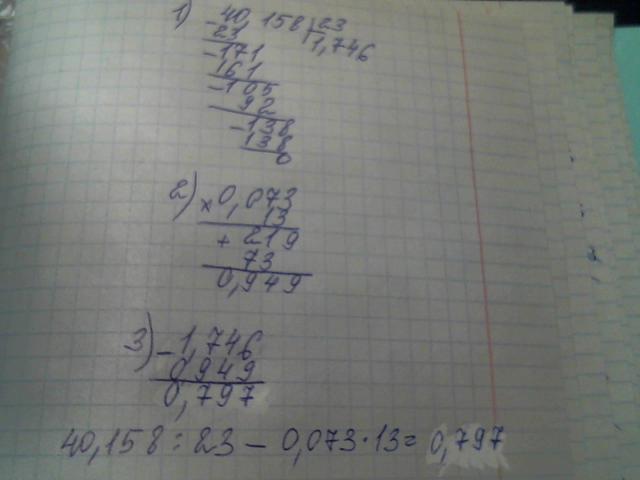 1) -40,158 | 23
23 1,746
-171
161
-105
92
-138
138
0
2) ×0,073
13
+219
73
0,949
3) -1,746
0,949
0,797
40,158:23-0,073·13=0,797